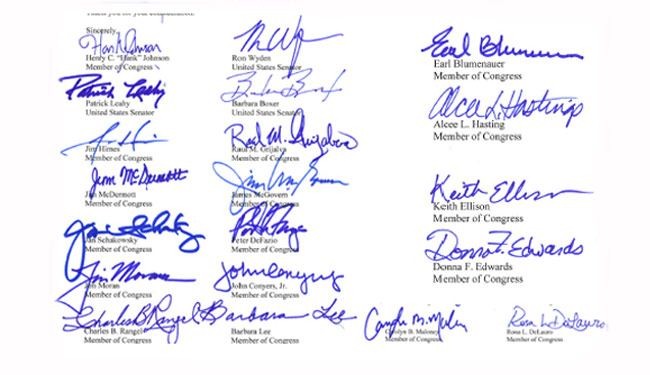 Sincerely,
Hank Johnson
Henry C. "Hank" Johnson
Member of Congress
Ron Wyden
United States Senator
Earl Blumenauer
Earl Blumenauer
Member of Congress
Patrick Leahy
Patrick Leahy
United States Senator
Barbara Boxer
United States Senator
Alcee L. Hastings
Alcee L. Hasting
Member of Congress
Jim Himes
Member of Congress
Raul M. Grijalva
Raul M. Grijalva
Member of Congress
Jim McDermott
Jim McDermott
Member of Congress
James McGovern
Member of Congress
Keith Ellison
Keith Ellison
Member of Congress
Jan Schakowsky
Jan Schakowsky
Member of Congress
Peter DeFazio
Member of Congress
Donna F. Edwards
Donna F. Edwards
Member of Congress
Jim Moran
Jim Moran
Member of Congress
John Conyers
John Conyers, Jr.
Member of Congress
Charles B Rangel
Charles B. Rangel
Member of Congress
Barbara Lee
Barbara Lee
Member of Congress
Carolyn B. Maloney
Member of Congress
Rosa L. DeLauro
Rosa L. DeLauro
Member of Congress